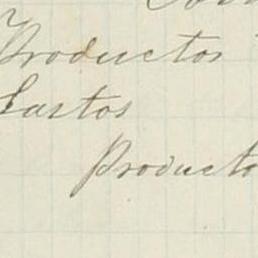 Productos
Gastos
Producto